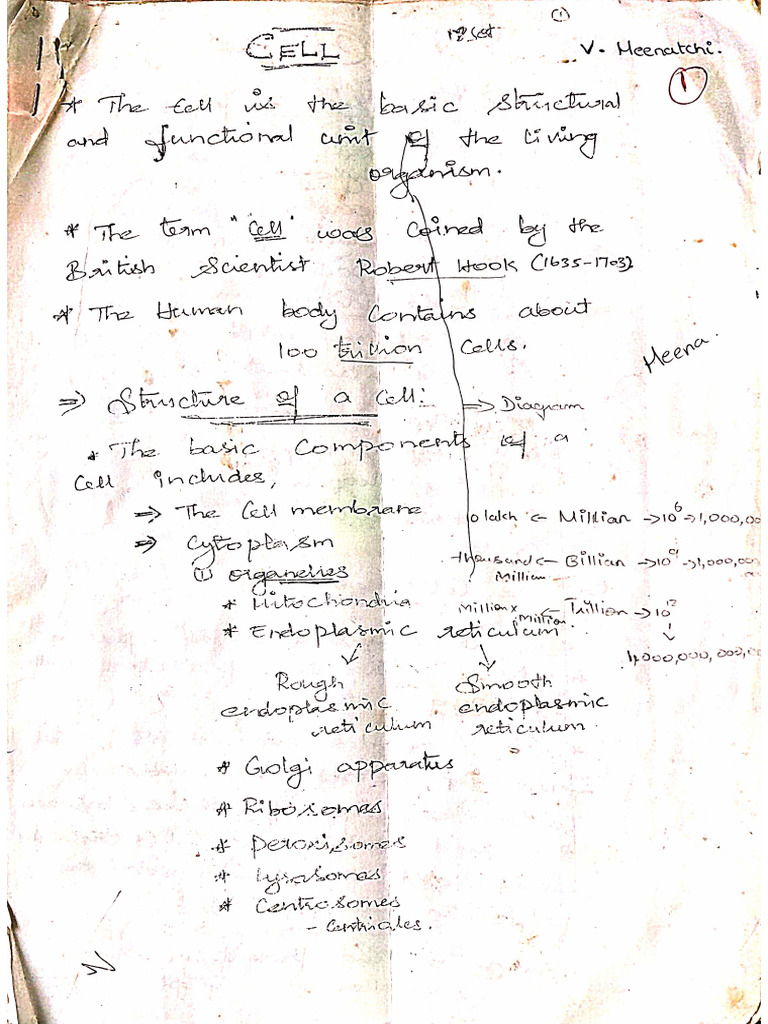 ①
CELL
V. Meenatchi.
①
* The Cell is the basic structural
and functional unit of the living
organism.
* The term "Cell" was coined by the
British Scientist Robert Hook (1635-1703)
* The Human body contains about
100 trillion cells.
Meena.
⇒ Structure of a Cell: ⇒ Diagram
* The basic Components of a
Cell includes,
⇒ The Cell membrane
10 lakh ← Millian → 10⁶ → 1,000,00
⇒ Cytoplasm
thousand Millian ← Billian → 10⁹ → 1,000,00
① organelles
* Mitochondria
Million x Million ← Trillion → 10¹²
* Endoplasmic reticulum.
1,000,000,000,0
Rough endoplasmic reticulum
Smooth endoplasmic reticulum.
* Golgi apparatus
* Ribosomes
* Peroxisomes
* Lysosomes
* Centrosomes
- Centrioles.